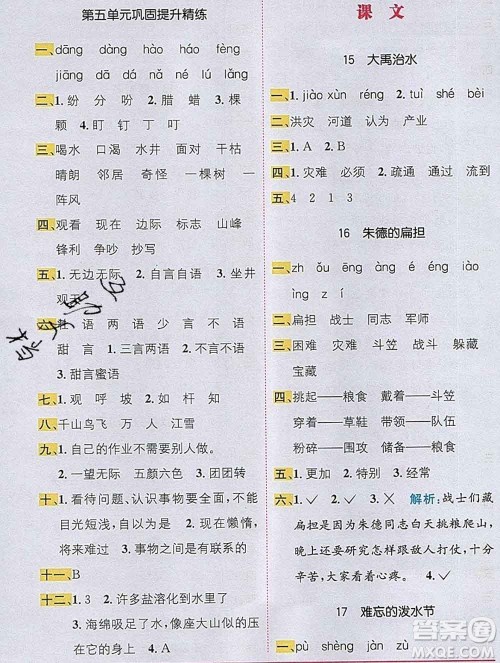 第五单元巩固提升精练
一、dāng dàng hào háo fèng
jiāng dǎ dā jiá jiǎ
二、1. 纷 分 吩 2. 腊 蜡 3. 棵
颗 4. 盯 钉 叮 订
三、喝水 口渴 水井 面井 干枯
晴朗 邻居 奇怪 一棵树 一
阵风
四、观看 现在 边际 标志 山峰
锋利 争吵 抄写
五、1. 无边无际 2. 自言自语 3. 坐井
观天
语 两 语 少 言 不 语
甜 言 2. 三言两语 2. 不言不语
3. 甜言蜜语
七、1. 观 呼 坡 2. 如 杆 知
八、千山鸟飞 万 人 江雪
九、1. 自己的作业不同别人做。
2. 一望无际 五颜六色 3. 团团转
十、1. 看待问题、认识事物要全面，不能
目光短浅，自以为是 2. 现在懒惰，将
来难过 3. 事物之间是有联系的
十一、B
十二、1. 3 2. 许多盐溶化到水里了
3. 海绵吸足了水，像座大山似的
压在它的身上。 4. A
课 文
15 大禹治水
一、1. jiào xùn réng 2. tuì shé bèi
二、洪灾 河道 认为 产业
三、1. A 2. B
四、1. 灾难 必须 2. 疏通 通过 流到
五、4 2 1 3
16 朱德的扁担
一、zh ǒu ēng áng à éng iáo
ìng z í
二、扁担 战士 同志 军师
三、困难 灾难 斗笠 战斗 躲藏
宝藏
四、挑起——粮食 戴着——斗笠
穿着——草鞋 带领——队伍
粉碎——围攻 储备——粮食
五、1. 更加 2. 特别 3. 经常
六、1. ✓ 2. ✓ 3. ✕ 解析：战士们藏
扁担，是因为朱德同志白天挑粮爬山，
晚上还要研究怎样跟敌人打仗，十分
辛苦，大家看着心疼。 4. ✓
17 难忘的泼水节
一、pù shèng jàn zù
答案圈
MXQE.COM